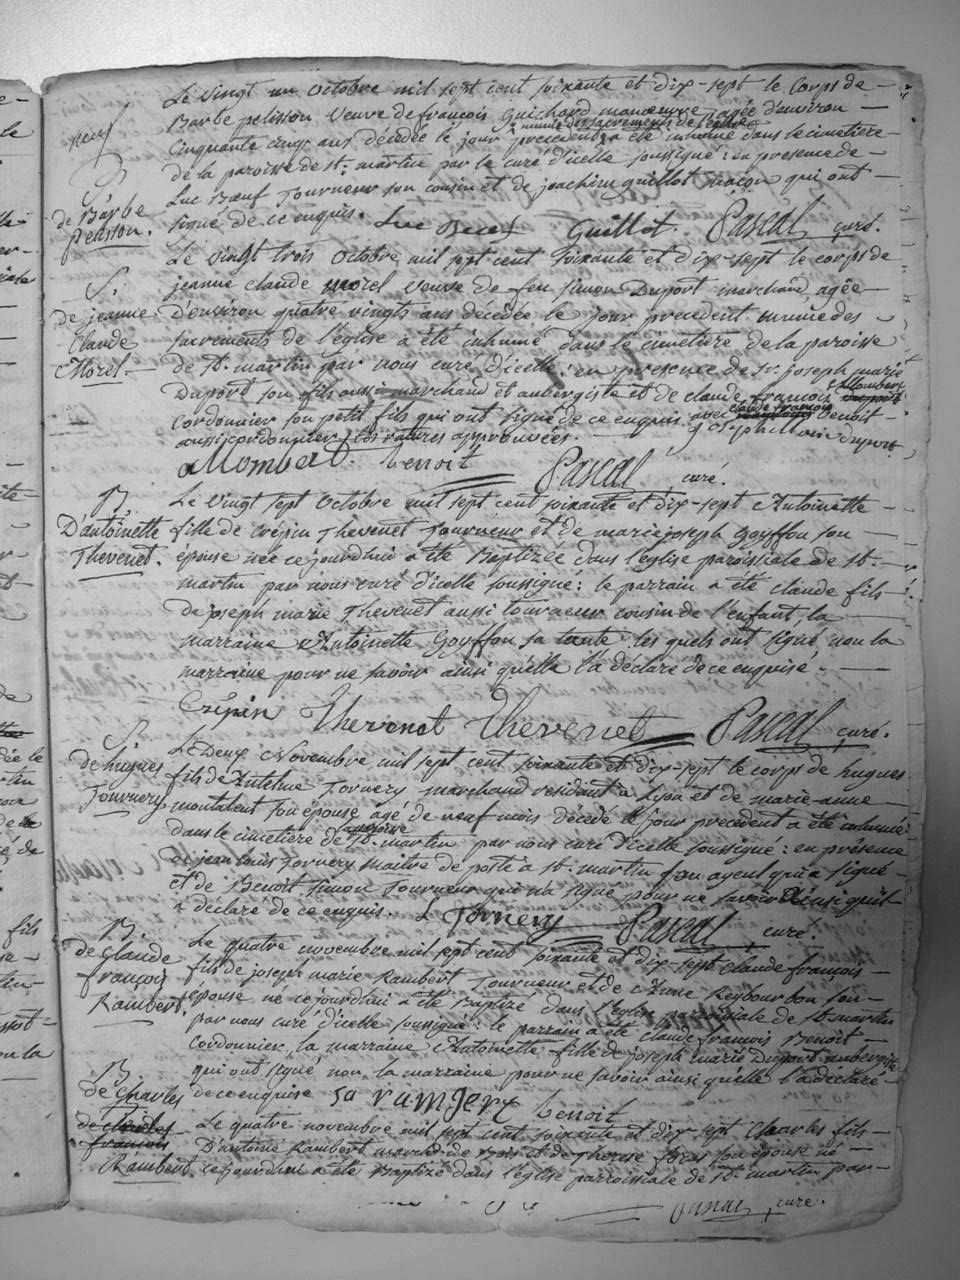 Le vingt un octobre mil sept cent soixante et dix-sept le corps de
Barbe pelisson veuve de françois Guichard manœuvre agée d'environ
munie des sacrements de l'église
cinquante cinq ans décédée le jour précédent a été inhumé dans le cimetiere
de la paroisse de st. martin par le curé d'icelle soussigné : en presence de
Luc Bœuf Tourneur son cousin et de joachim guillot maçon qui ont
de Barbe
Pelisson.
signé de ce enquis. Luc Boeuf Guillot. Pascal curé.
Le vingt trois octobre mil sept cent soixante et dix-sept le corps de
S.
jeanne claude morel veuve de feu simon Duport marchand agée
de jeanne
D'environ quatre vingts ans décédée le jour precedent munie des
Claude
sacrements de l'église a été inhumé dans le cimetiere de la paroisse
Morel.
de St. martin par nous curé d'icelle : en presence de sr. joseph marie
Duport son fils aussi marchand et aubergiste et de claude françois
cordonier son petit fils qui ont signé de ce enquis avec claude françois benoit
aussi cordonnier les ratures approuvées. joseph marie duport
aMombert. benoit Pascal curé.
B.
Le vingt sept octobre mil sept cent soixante et dix-sept Antoinette
D'antoinette
fille de crépin Thevenet Tourneur et de marie joseph Goyffon son
Thevenet.
épouse née ce jourdhui a été Baptizée dans l'eglise paroissiale de St.
martin par nous curé d'icelle soussigné : le parrain a été claude fils
de joseph marie Thevenet aussi tourneur cousin de l'enfant, la
marraine Antoinette Goyffon sa tante les quels ont signé non la
marraine pour ne savoir ainsi qu'elle l'a déclaré de ce enquisé.
Crépin Thevenet Thevenet Pascal curé.
S.
Le Deux Novembre mil sept cent soixante et dix-sept le corps de hugues
de hugues
fils de Antelme Tornery marchand résidant à Lyon et de marie-anne
Tournery
montalent son épouse agé de neuf mois décédé le jour precedent a été inhumé
dans le cimetiere de St. martin par nous curé d'icelle soussigné : en présence
de jean louis Tornery maitre de poste à St. martin son ayeul qui a signé
et de Benoit simon Tourneur qui n'a signé pour ne savoir ainsi qu'il
a déclaré de ce enquis. L Tornery Pascal curé.
B.
Le quatre novembre mil sept cent soixante et dix sept claude françois
de claude
fils de joseph marie Rambert Tourneur et de Anne Reybourbon son
françois
épouse né ce jourdhui a été Baptizé dans l'eglise parroissiale de St. martin
Rambert.
par nous curé d'icelle soussigné : le parrain a été claude françois Benoit
cordonnier, la marraine Antoinette fille de joseph marie Duport aubergiste
qui ont signé non la marraine pour ne savoir ainsi qu'elle l'a déclaré
B.
de ce enquise benoit
de charles
Le quatre novembre mil sept cent soixante et dix sept Charles fils
françois
D'antoine Rambert marchd de bois et de Therese son épouse né
Rambert
ce jourdhui a été Baptizé dans l'église parroissiale de St. martin par
Pascal curé.